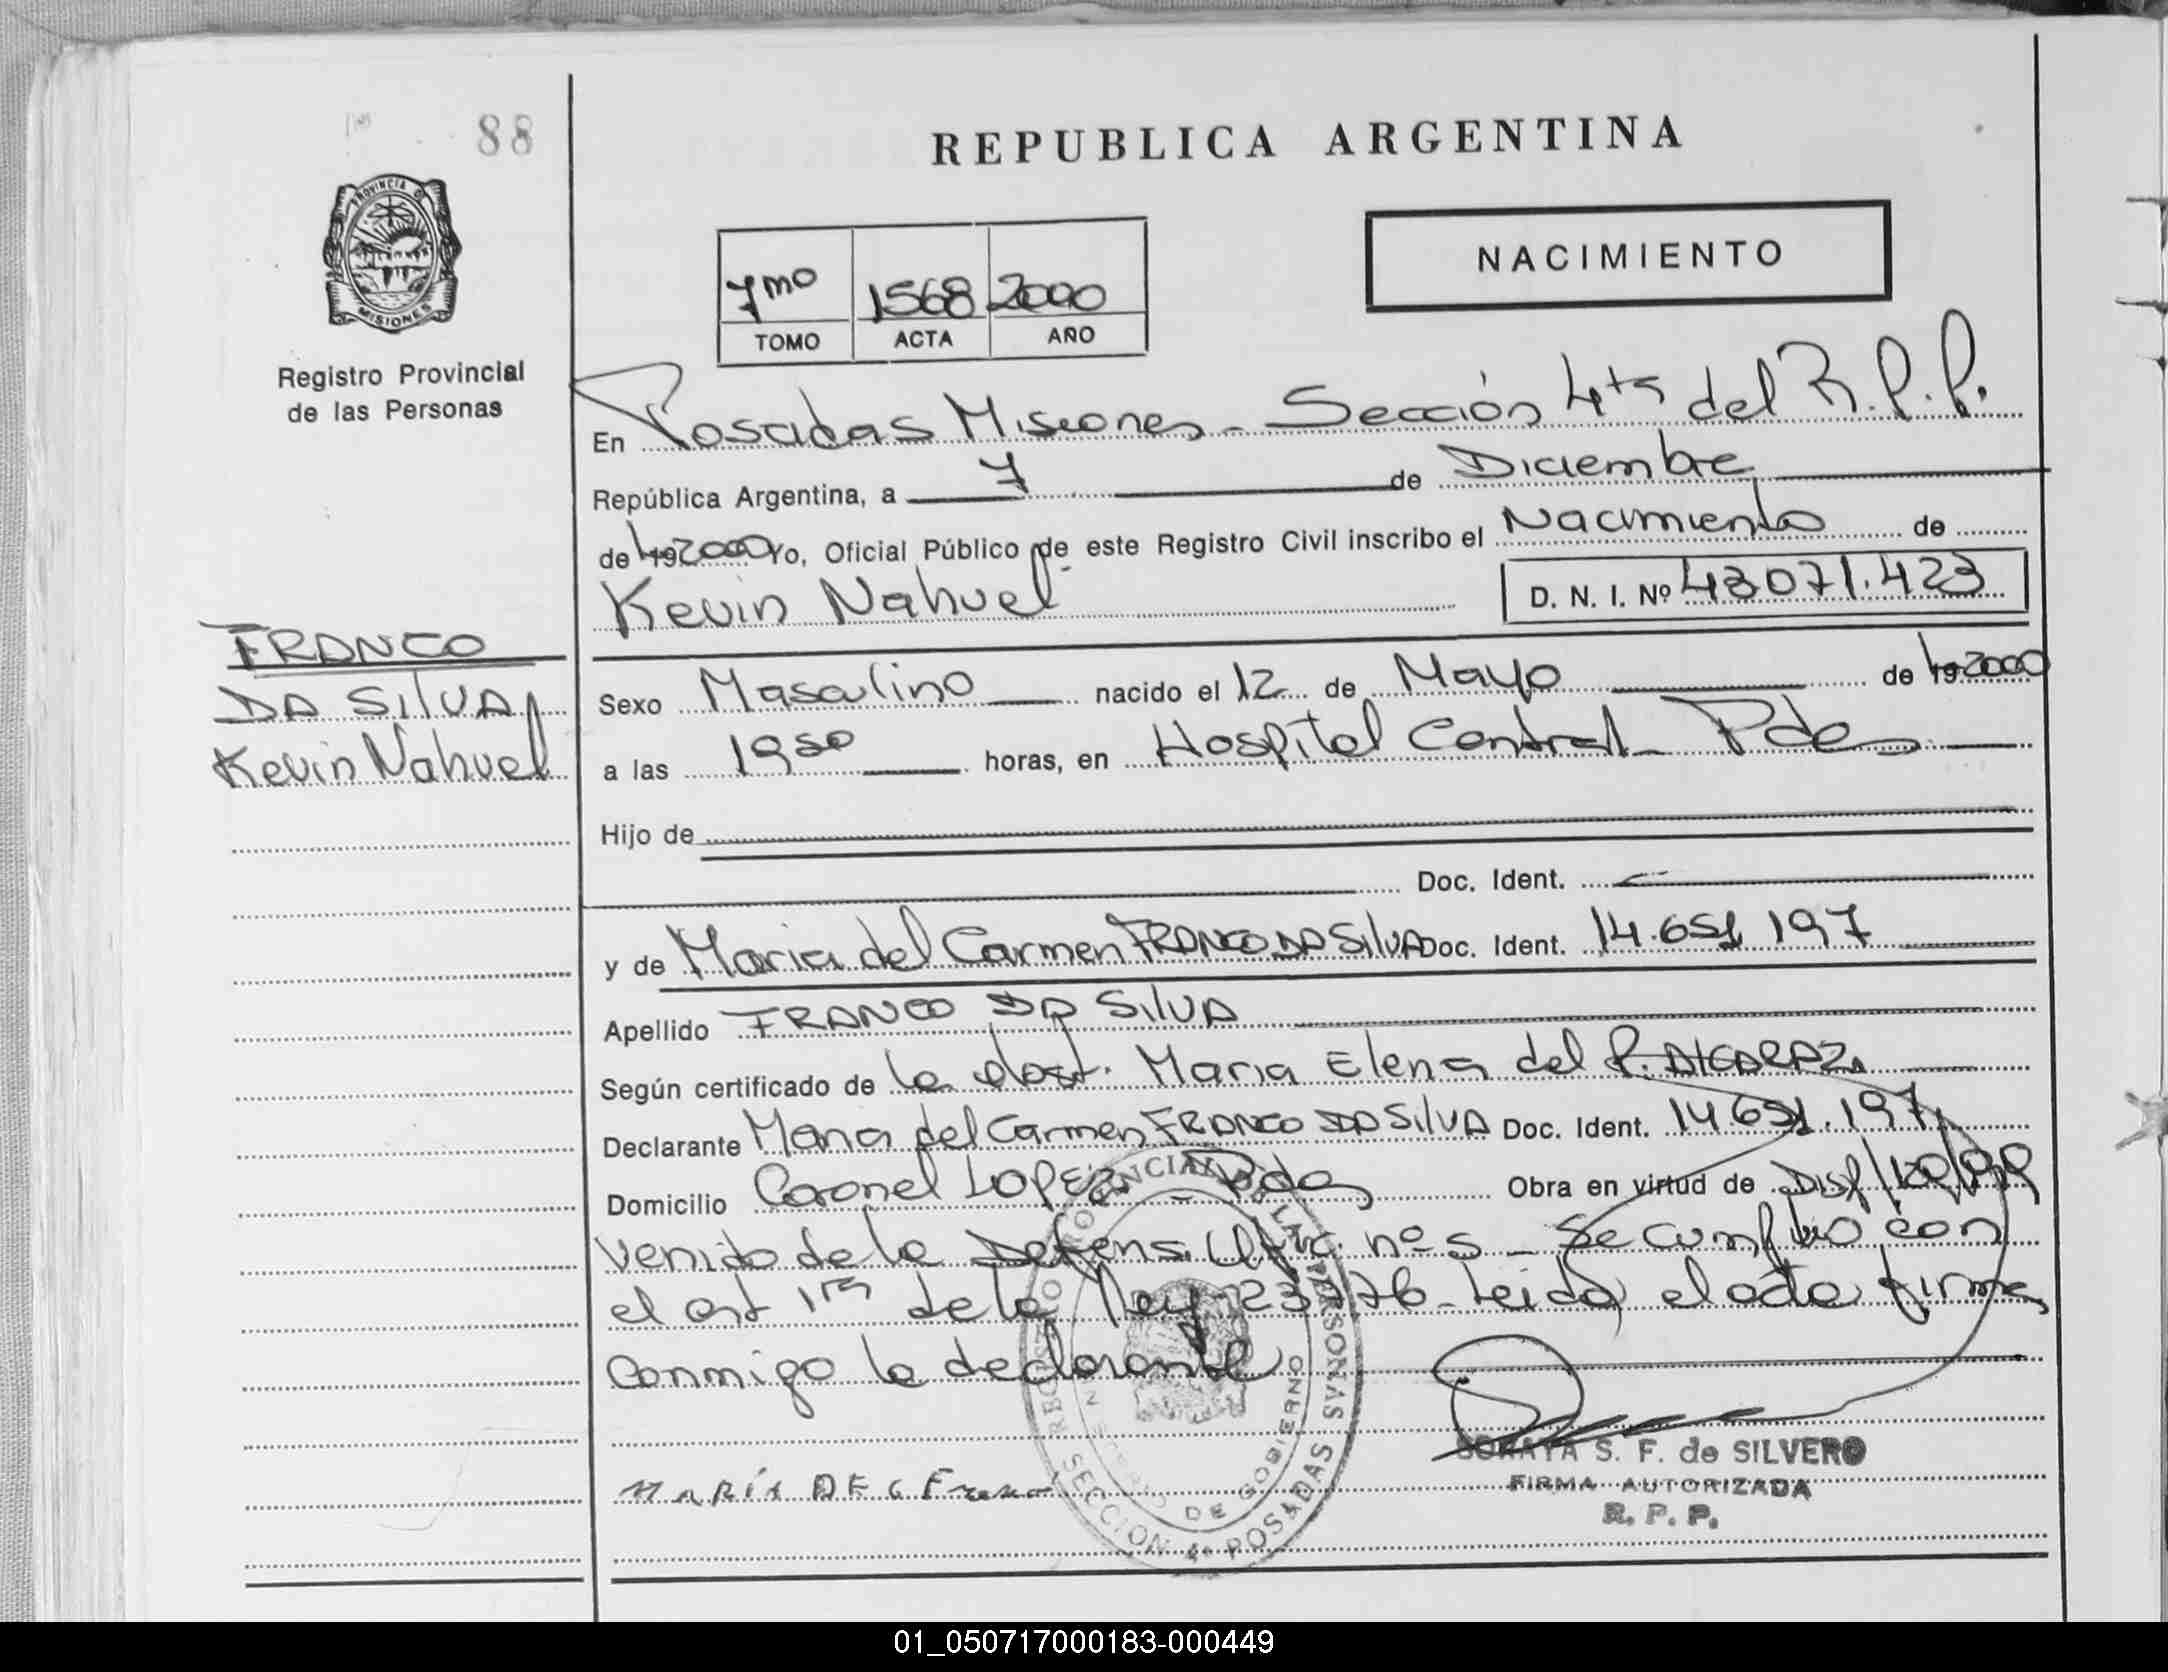 88
REPUBLICA ARGENTINA
PROVINCIA DE MISIONES
Registro Provincial
de las Personas
7mo 1568 2000
TOMO ACTA AÑO
NACIMIENTO
En Posadas Misiones - Sección 4ta del R.P.P.
República Argentina, a 7 de Diciembre
de 19 2000 Yo, Oficial Público de este Registro Civil inscribo el Nacimiento de
Kevin Nahuel D. N. I. Nº 43.071.423
FRANCO
DA SILVA
Kevin Nahuel
Sexo Masculino nacido el 12 de Mayo de 19 2000
a las 19 50 horas, en Hospital Central - Pdas
Hijo de
Doc. Ident.
y de Maria del Carmen FRANCO DA SILVA Doc. Ident. 14.651.197
Apellido FRANCO DA SILVA
Según certificado de la obst. Maria Elena del P. ALCARAZ
Declarante Maria del Carmen FRANCO DA SILVA Doc. Ident. 14.651.197
Domicilio Coronel LOPEZ - Pdas Obra en virtud de Disp
venido de la Defens. nº 5 - Se cumplio con
el art 1ra de la ley 23776 - Leida el acta firma
conmigo la declarante
MARÍA DE C Franco
SORAYA S. F. de SILVERO
FIRMA AUTORIZADA
R. P. P.
REGISTRO PROVINCIAL DE LAS PERSONAS
MINISTERIO DE GOBIERNO
SECCION 4ª POSADAS
01_050717000183-000449